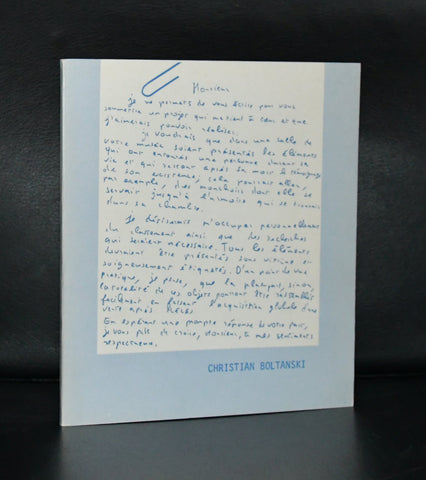 Monsieur
je me permets de vous écrire pour vous
soumettre un projet qui me tient à cœur et que
j'aimerais pouvoir réaliser.
je voudrais que dans une salle de
votre musée soient présentés les éléments
qui ont entourés une personne durant sa
vie et qui seront après sa mort le témoignage
de son existence; cela pourrait aller,
par exemple, des mouchoirs dont elle se
servait jusqu'à l'armoire qui se trouvait
dans sa chambre.
Je désirerais m'occuper personnellement
du classement ainsi que des recherches
qui seraient nécessaire. Tous les éléments
devraient être présentés sous vitrine et
soigneusement étiquetés. D'un point de vue
pratique, je pense, que la plupart, sinon,
la totalité de ces objets pourront être rassemblés
facilement en faisant l'acquisition globale d'une
vente après
En espérant une prompte réponse de votre part,
je vous prie de croire, Monsieur, à mes sentiments
respectueux.
CHRISTIAN BOLTANSKI